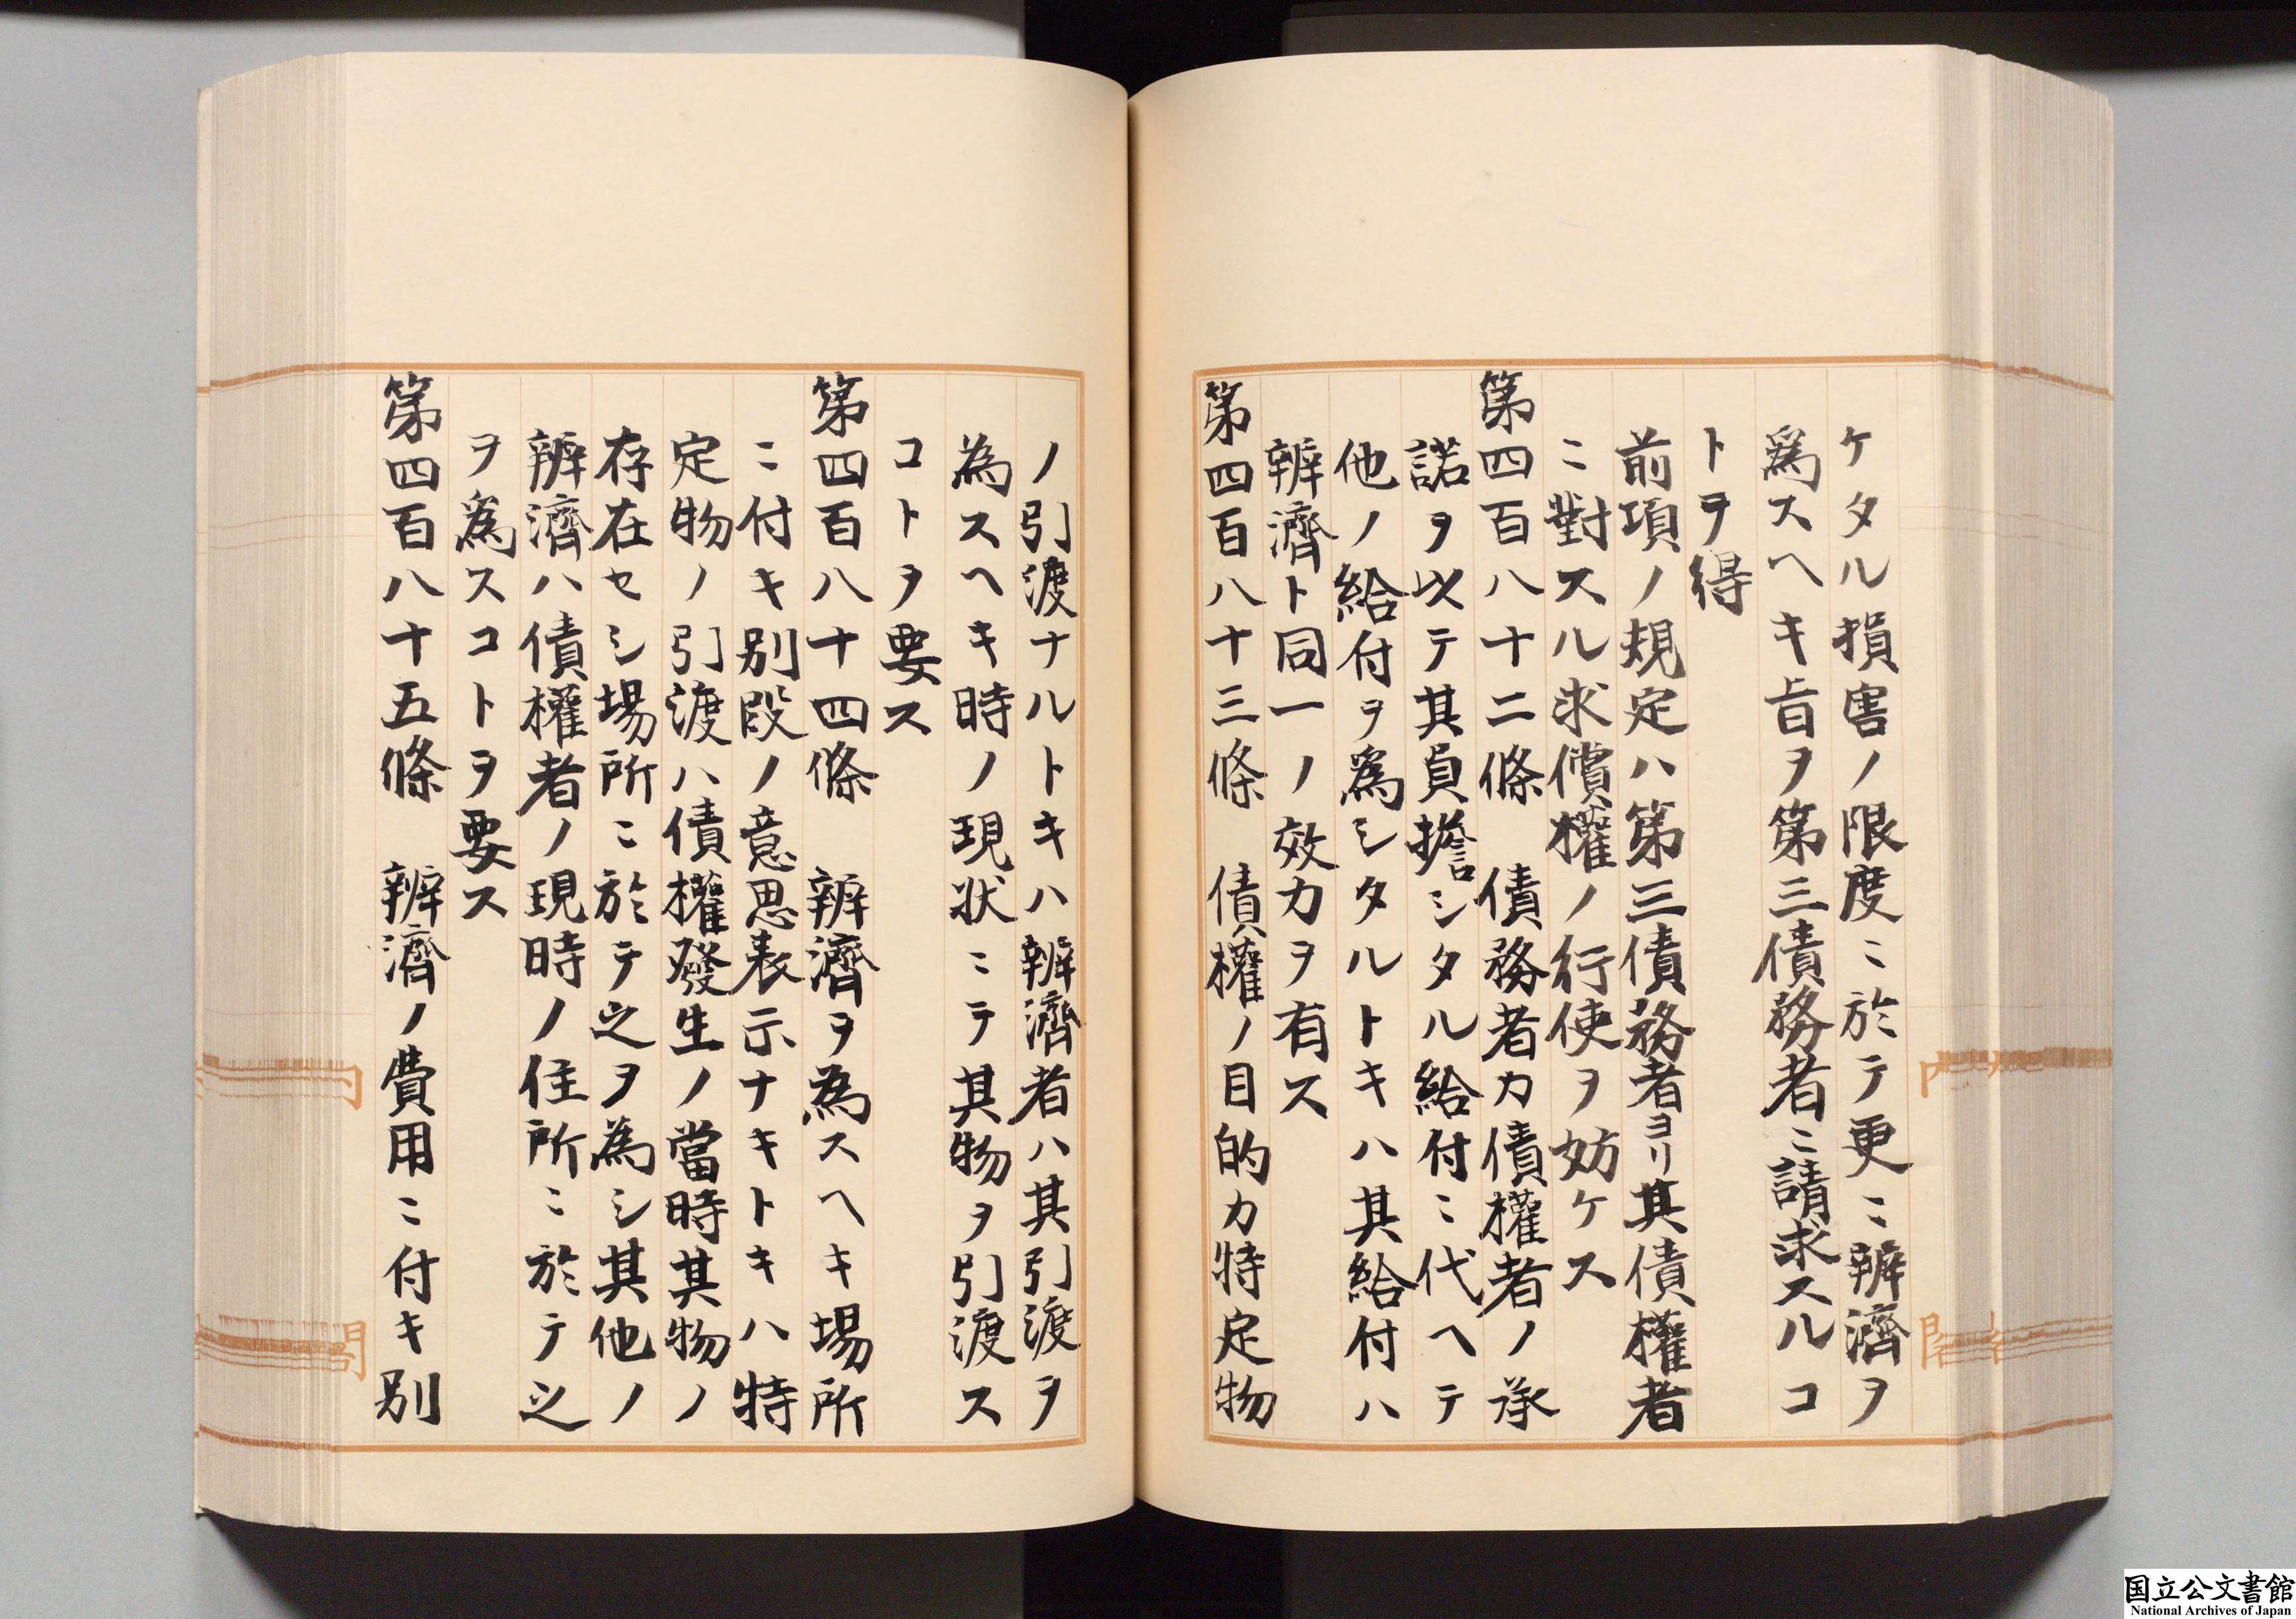 ケタル損害ノ限度ニ於テ更ニ辨濟ヲ
爲スヘキ旨ヲ第三債務者ニ請求スルコ
トヲ得
前項ノ規定ハ第三債務者ヨリ其債權者
ニ對スル求償權ノ行使ヲ妨ケス
第四百八十二條　債務者カ債權者ノ承
諾ヲ以テ其負擔シタル給付ニ代ヘテ
他ノ給付ヲ爲シタルトキハ其給付ハ
辨濟ト同一ノ效力ヲ有ス
第四百八十三條　債權ノ目的カ特定物
ノ引渡ナルトキハ辨濟者ハ其引渡ヲ
為スヘキ時ノ現狀ニテ其物ヲ引渡ス
コトヲ要ス
第四百八十四條　辨濟ヲ為スヘキ場所
ニ付キ別段ノ意思表示ナキトキハ特
定物ノ引渡ハ債權發生ノ當時其物ノ
存在セシ場所ニ於テ之ヲ為シ其他ノ
辨濟ハ債權者ノ現時ノ住所ニ於テ之
ヲ爲スコトヲ要ス
第四百八十五條　辨濟ノ費用ニ付キ別
国立公文書館
National Archives of Japan